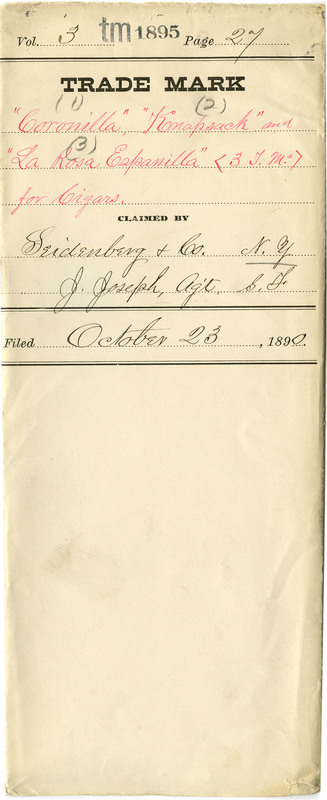 Vol. 3 tm 1895 Page 27
TRADE MARK
(1) (2)
"Coronilla", "Knapsack" and
(3)
"La Rosa Espanilla" (3 T.Ms)
for Cigars.
CLAIMED BY
Seidenberg & Co. N.Y.
J. Joseph, Agt. S.F.
Filed October 23, 1890.